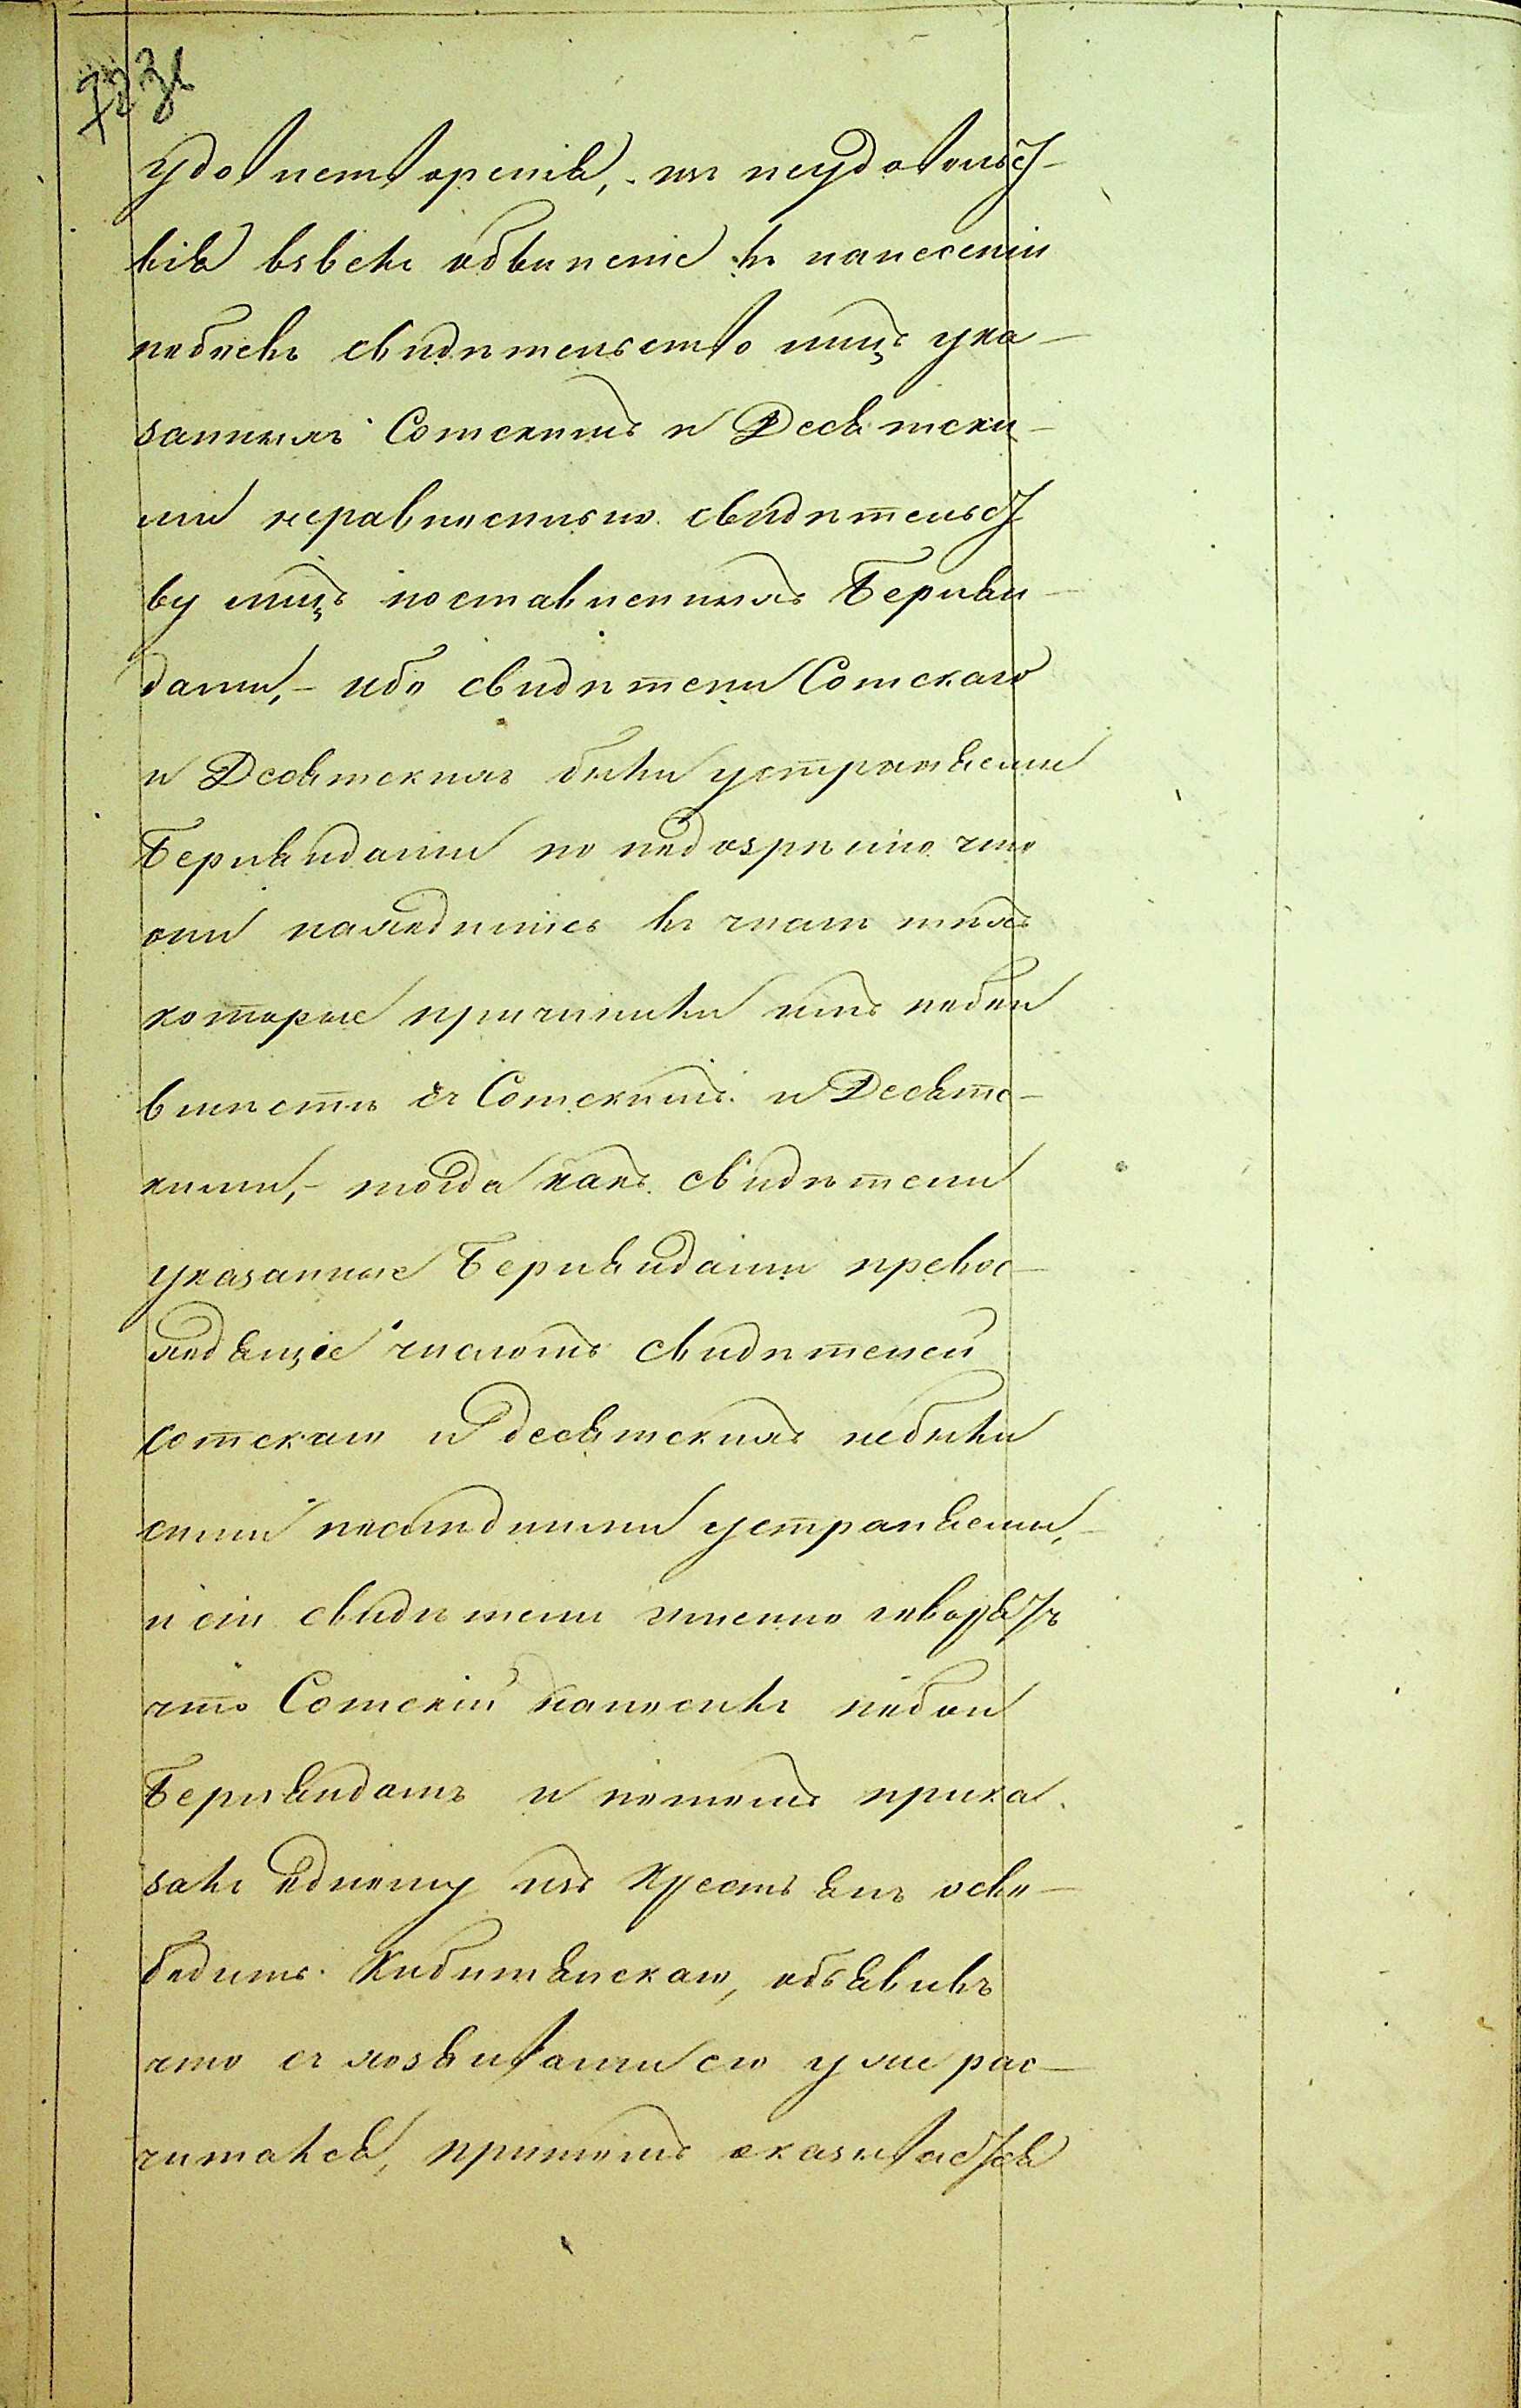 удовлетворенія, но неудовольст-
вія взвелъ обвиненіе въ нанесеніи
побоевъ свидѣтельство лицъ ука-
занныхъ Сотскимъ и Десятски-
ми неравносильно свидѣтельст
ву лицъ поставленныхъ Берлин-
дами, - ибо свидѣтели Сотскаго
и Десятскихъ были устраняеми
Берляндами по подозрѣнію что
они находились въ числѣ тѣхъ
которые причинили имъ побои
вмѣстѣ съ Сотскимъ и Десятс-
кими, - тогда какъ свидѣтели
указанные Берляндами превос-
ходящіе числомъ свидѣтелей
сотскаго и десятскихъ небыли
сими послѣдними устраняеми,
и сіи свидѣтели именно говорятъ
что Сотскій наносилъ побои
Берляндамъ и потомъ прика
залъ одному изъ Крестьянъ осво-
бодить Кибитянскаго, объявивъ
что съ хозяивами его уже рас-
читался, притомъ оказывается